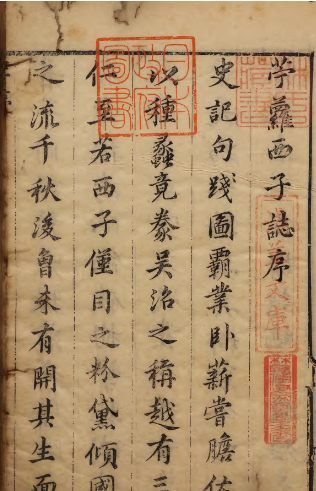 苧蘿西子誌序
史記句踐圖霸業卧薪嘗膽
以種蠡竟豢吳沼之稱越有三
仁至若西子僅目之粉黛傾國
之流千秋後曾未有開其生面
日本政府圖書
文庫